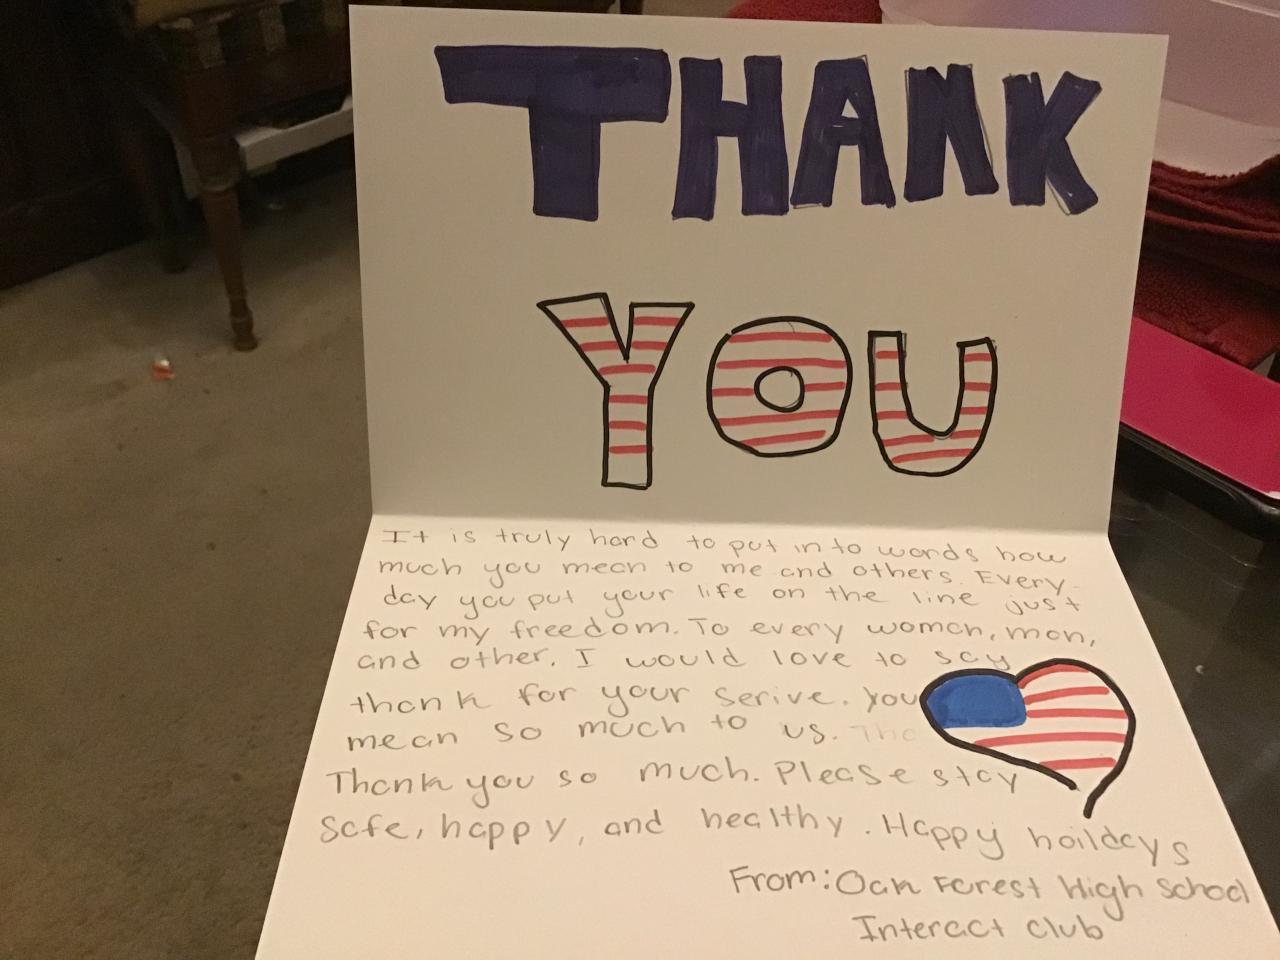 THANK
YOU
It is truly hard to put into words how
much you mean to me and others. Every-
day you put your life on the line just
for my freedom. To every women, men,
and other. I would love to say
thank for your serive. You
mean so much to us. Tha
Thank you so much. Please stay
safe, happy, and healthy. Happy hoildays
From: Oak Forest High School
Interact club